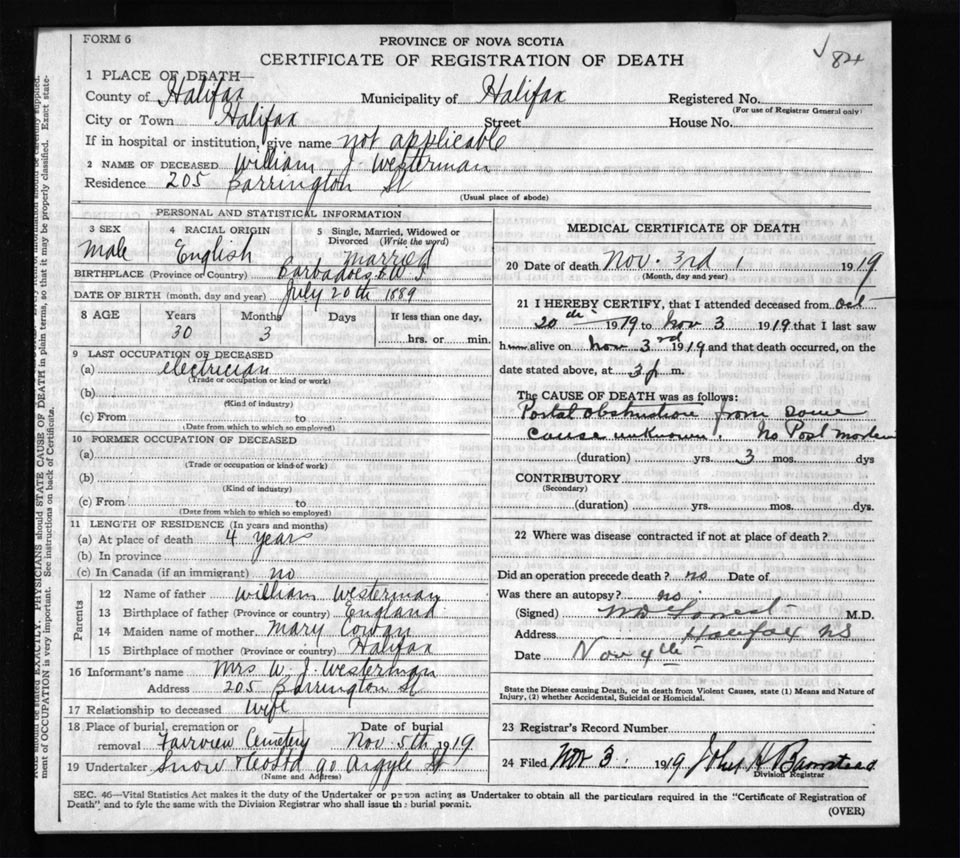 FORM 6
PROVINCE OF NOVA SCOTIA
CERTIFICATE OF REGISTRATION OF DEATH
84
1 PLACE OF DEATH—
County of Halifax Municipality of Halifax Registered No.
(For use of Registrar General only)
City or Town Halifax Street House No.
If in hospital or institution, give name not applicable
2 NAME OF DECEASED William J Westerman
Residence 205 Barrington St
(Usual place of abode)
PERSONAL AND STATISTICAL INFORMATION
3 SEX 4 RACIAL ORIGIN 5 Single, Married, Widowed or
Divorced (Write the word)
Male English Married
BIRTHPLACE (Province or Country) Barbadoes B.W.I.
DATE OF BIRTH (month, day and year) July 20th 1889
8 AGE Years Months Days If less than one day,
30 3 hrs. or min.
9 LAST OCCUPATION OF DECEASED
(a) electrician
(Trade or occupation or kind or work)
(b)
(Kind of industry)
(c) From to
(Date from which to which so employed)
10 FORMER OCCUPATION OF DECEASED
(a)
(Trade or occupation or kind of work)
(b)
(Kind of industry)
(c) From to
(Date from which to which so employed)
11 LENGTH OF RESIDENCE (In years and months)
(a) At place of death 4 years
(b) In province
(c) In Canada (if an immigrant) no
Parents
12 Name of father William Westerman
13 Birthplace of father (Province or country) England
14 Maiden name of mother Mary Cowan
15 Birthplace of mother (Province or country) Halifax
16 Informant's name Mrs W. J. Westerman
Address 205 Barrington St
17 Relationship to deceased Wife
18 Place of burial, cremation or Date of burial
removal Fairview Cemetery Nov 5th 1919.
19 Undertaker Snow & Co Ltd 90 Argyle St
(Name and Address)
MEDICAL CERTIFICATE OF DEATH
20 Date of death Nov. 3rd 1919
(Month, day and year)
21 I HEREBY CERTIFY, that I attended deceased from Oct
20th 1919 to Nov 3 1919 that I last saw
him alive on Nov 3rd 1919 and that death occurred, on the
date stated above, at 3 p m.
The CAUSE OF DEATH was as follows:
Portal obstruction from some
cause unknown. No Post mortem
(duration) yrs. 3 mos. dys
CONTRIBUTORY
(Secondary)
(duration) yrs. mos. dys.
22 Where was disease contracted if not at place of death?
Did an operation precede death? no Date of
Was there an autopsy? no
(Signed) M.D.
Address Halifax NS
Date Nov 4th
State the Disease causing Death, or in death from Violent Causes, state (1) Means and Nature of
Injury, (2) whether Accidental, Suicidal or Homicidal.
23 Registrar's Record Number
24 Filed Nov 3 1919 John H Barnstead
Division Registrar
SEC. 46—Vital Statistics Act makes it the duty of the Undertaker or person acting as Undertaker to obtain all the particulars required in the "Certificate of Registration of
Death" and to fyle the same with the Division Registrar who shall issue the burial permit.
(OVER)
PHYSICIANS should STATE CAUSE OF DEATH in plain terms, so that it may be properly classified. Exact state-
ment of OCCUPATION is very important. See instructions on back of Certificate.